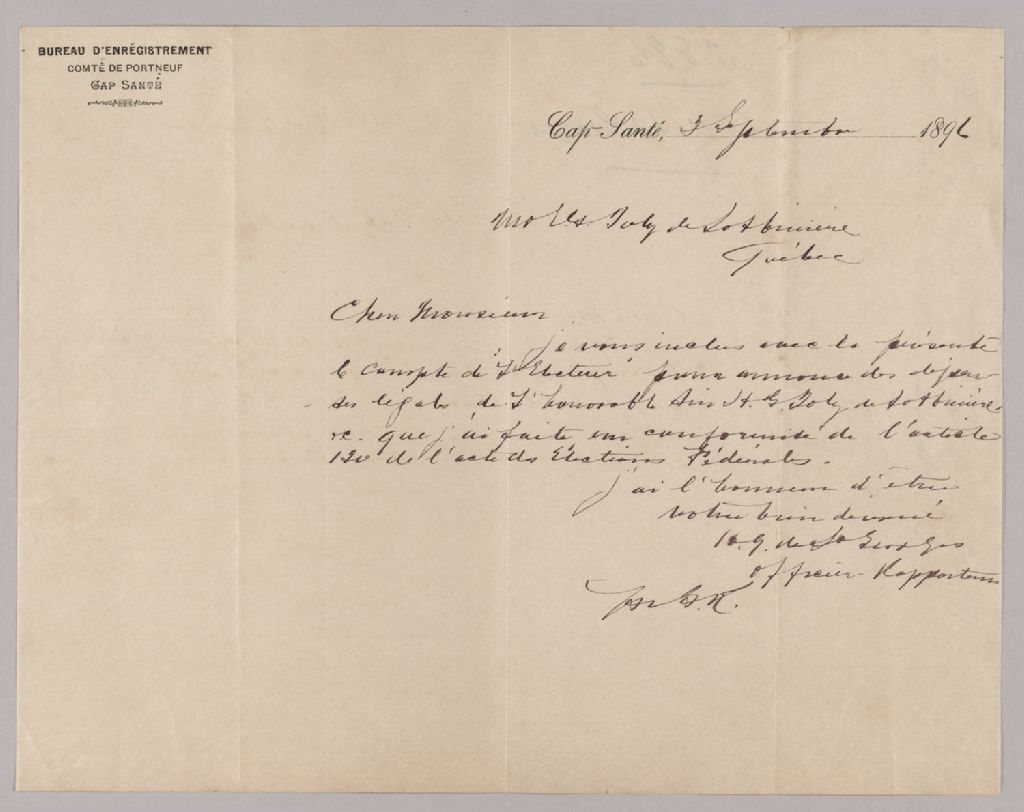 BUREAU D'ENRÉGISTREMENT
COMTÉ DE PORTNEUF
CAP SANTÉ
Cap-Santé, 3 Septembre 1896
Joly de Lotbinière
Québec
Cher Monsieur
je vous inclus avec la présente
le compte de "L'Electeur" pour annonce des dépen-
ses légales de l'honorable Sir H. G. Joly de Lotbinière
que j'ai faite en conformité de l'article
120 de l'acte des Elections Fédérales.
j'ai l'honneur d'être
votre bien dévoué
de St Georges
officier-Rapporteur